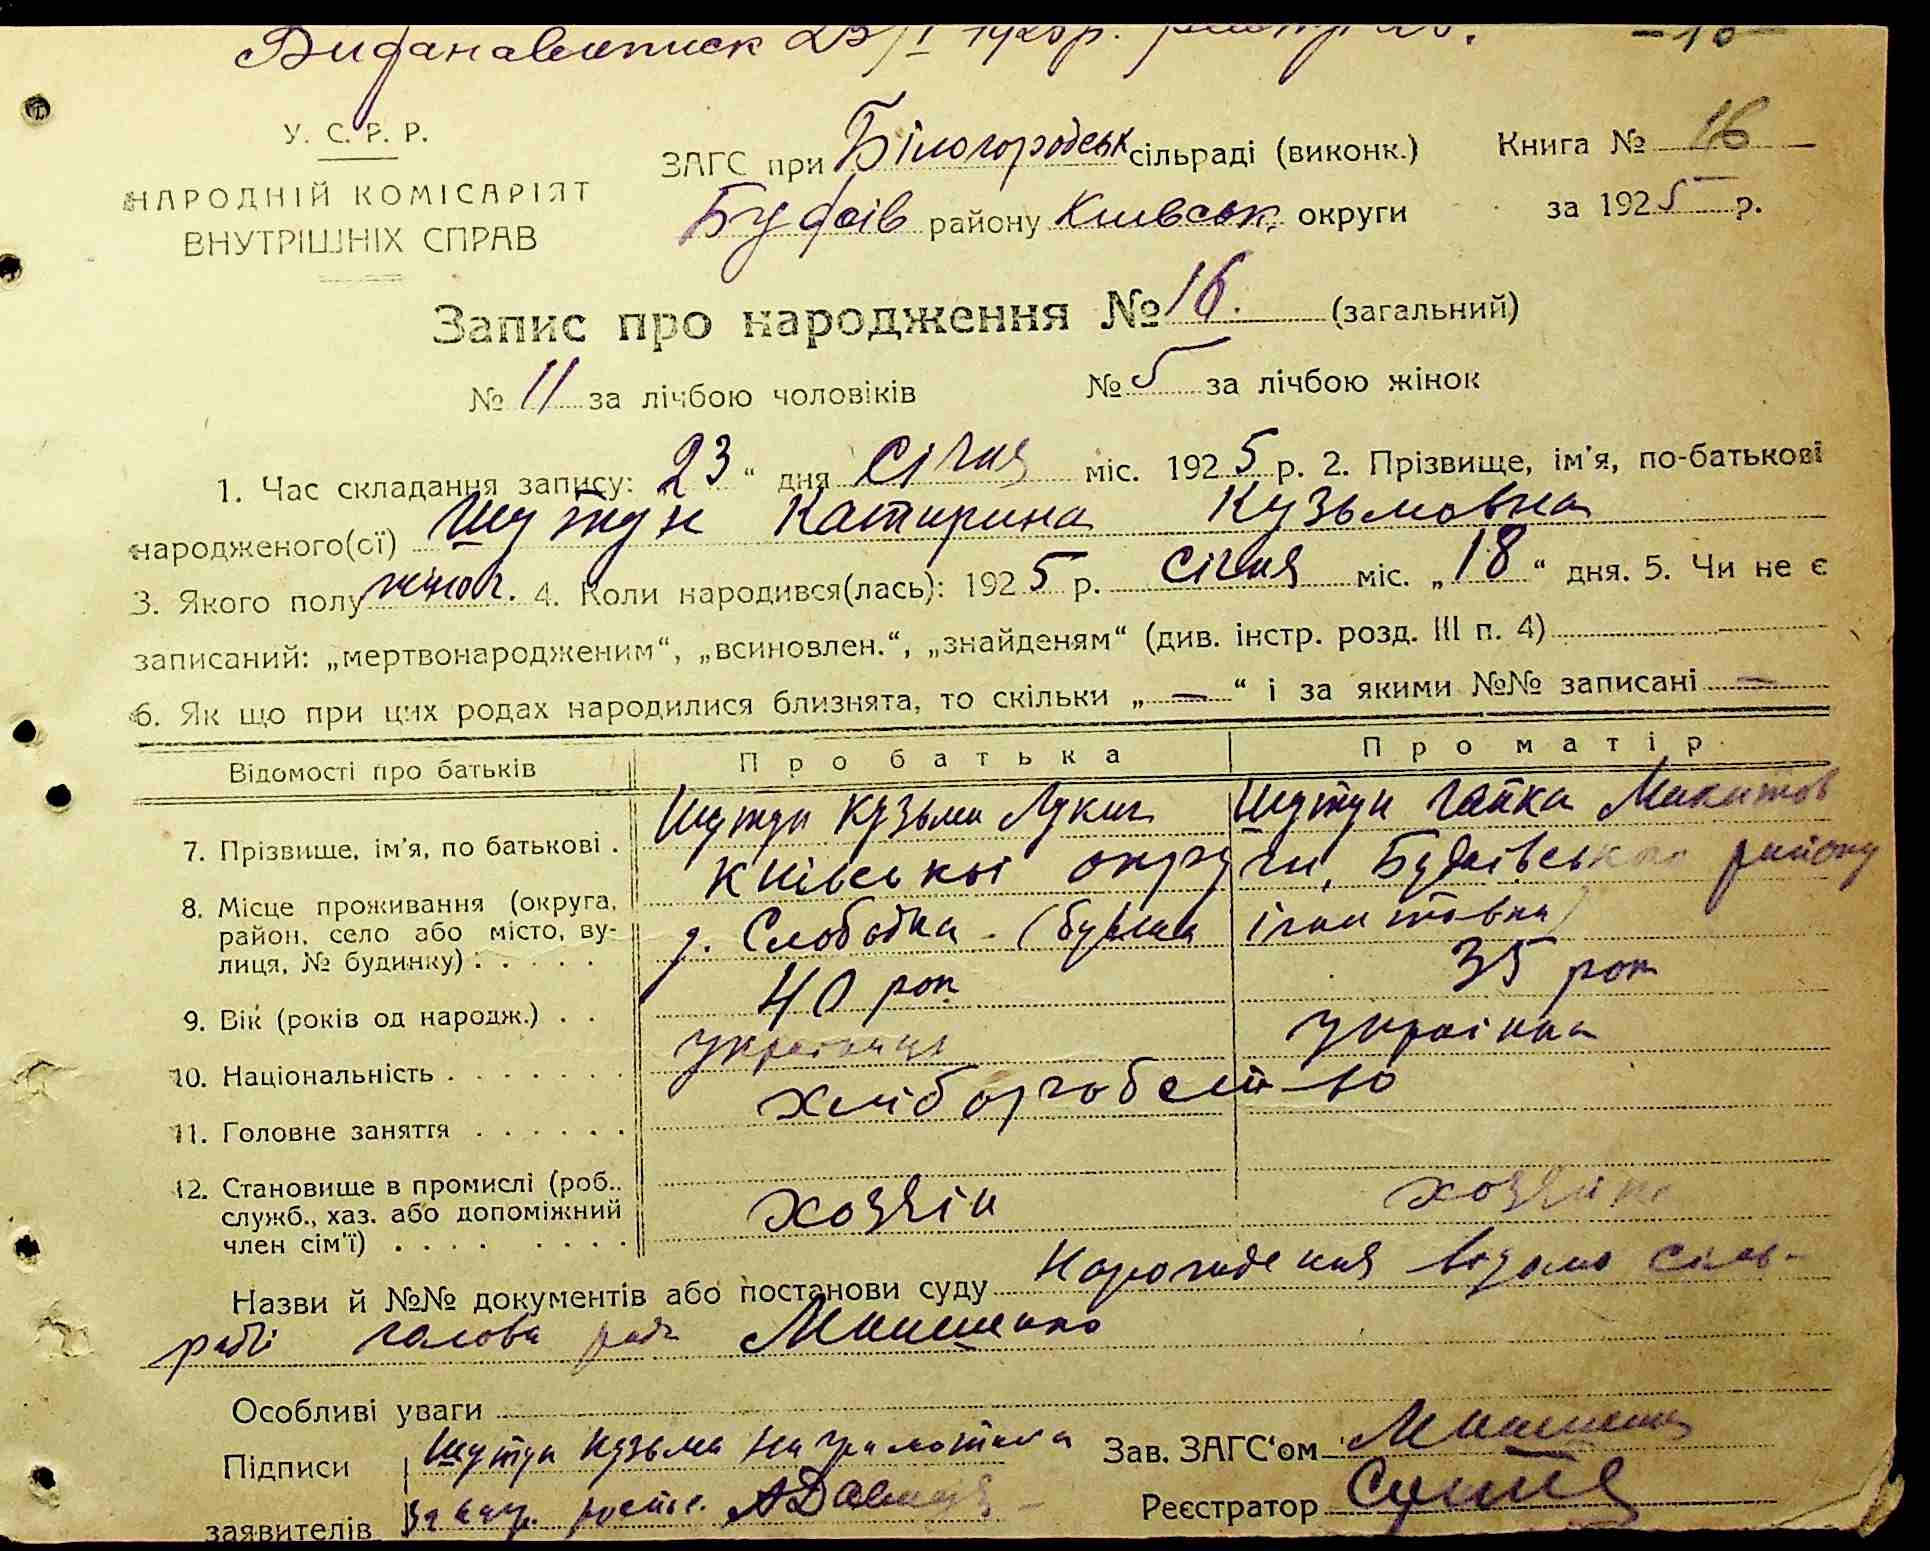 Видана виписк 1925 р.
У. С. Р. Р.
НАРОДНІЙ КОМІСАРІЯТ
ВНУТРІШНІХ СПРАВ
ЗАГС при Білогородськ сільраді (виконк.)
Будаїв району Київськ. округи
Книга № 16
за 1925 р.
Запис про народження № 16. (загальний)
№ 11 за лічбою чоловіків № 5 за лічбою жінок
1. Час складання запису: 23 “ дня Січня міс. 1925 р. 2. Прізвище, ім’я, по-батькові
народженого(ої) Шутун Катирина Кузьмовна
3. Якого полу жіноч. 4. Коли народився(лась): 1925 р. Січня міс. „18“ дня. 5. Чи не є
записаний: „мертвонародженим“, „всиновлен.“, „знайденям“ (див. інстр. розд. III п. 4)
6. Як що при цих родах народилися близнята, то скільки „—“ і за якими №№ записані —
Відомості про батьків Про батька Про матір
7. Прізвище, ім’я, по батькові . Шутун Кузьма Лукич Шутун Гапка Микитов
8. Місце проживання (округа, район, село або місто, вулиця, № будинку) : Київської округи, Будаївського району
Слободка
9. Вік (років од народж.) . . 40 рок 35 рок
10. Національність . . . . . . . українець українка
11. Головне заняття . . . . . . хліборобство
12. Становище в промислі (роб.. служб., хаз. або допоміжний член сім’ї) . . . . хозяін хозяйка
Назви й №№ документів або постанови суду Народження відомо сіль-
раді голова ради
Особливі уваги
Підписи Шутун Кузьма
Зав. ЗАГС‘ом
заявителів
Реєстратор